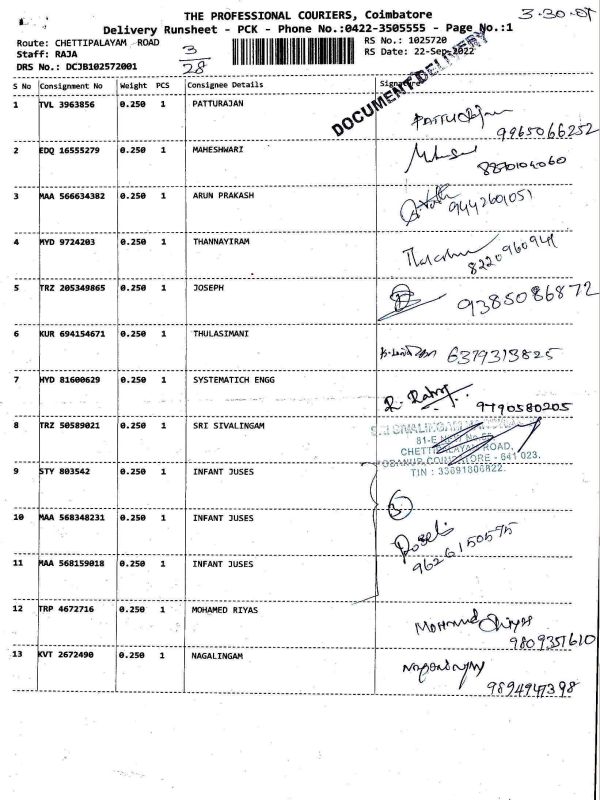 THE PROFESSIONAL COURIERS, Coimbatore
Delivery Runsheet - PCK - Phone No.:0422-3505555 - Page No.:1
Route: CHETTIPALAYAM ROAD
Staff: RAJA
DRS No.: DCJB102572001
3
28
RS No.: 1025720
RS Date: 22-Sep-2022
DOCUMENT DELIVERY
S No Consignment No Weight PCS Consignee Details
1 TVL 3963856 0.250 1 PATTURAJAN
9965066252
2 EDQ 16555279 0.250 1 MAHESHWARI
3 MAA 566634382 0.250 1 ARUN PRAKASH
9442601051
4 MYD 9724203 0.250 1 THANNAYIRAM
8220960941
5 TRZ 205349865 0.250 1 JOSEPH
9385086872
6 KUR 694154671 0.250 1 THULASIMANI
6379313825
7 HYD 81600629 0.250 1 SYSTEMATICH ENGG
9790580205
8 TRZ 50589021 0.250 1 SRI SIVALINGAM
CHETTIPALAYAM ROAD,
COIMBATORE - 641 023.
9 STY 803542 0.250 1 INFANT JUSES
10 MAA 568348231 0.250 1 INFANT JUSES
9626150575
11 MAA 568159018 0.250 1 INFANT JUSES
12 TRP 4672716 0.250 1 MOHAMED RIYAS
Mohamed Riyas
9809357610
13 KVT 2672490 0.250 1 NAGALINGAM
9894947398